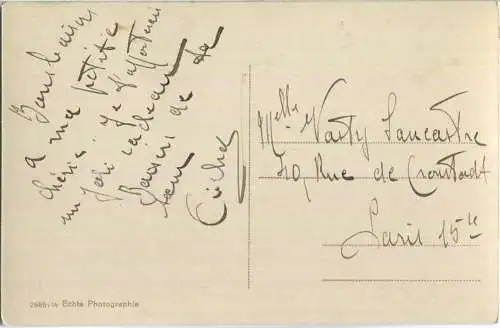 Bons baisers
a ma petite
chérie. Je t'apporterai
un joli cadeau
Baisers de ta
Melle Nasty Lancastre
Rue de Cronstadt
Paris 15e
2665/14 Echte Photographie